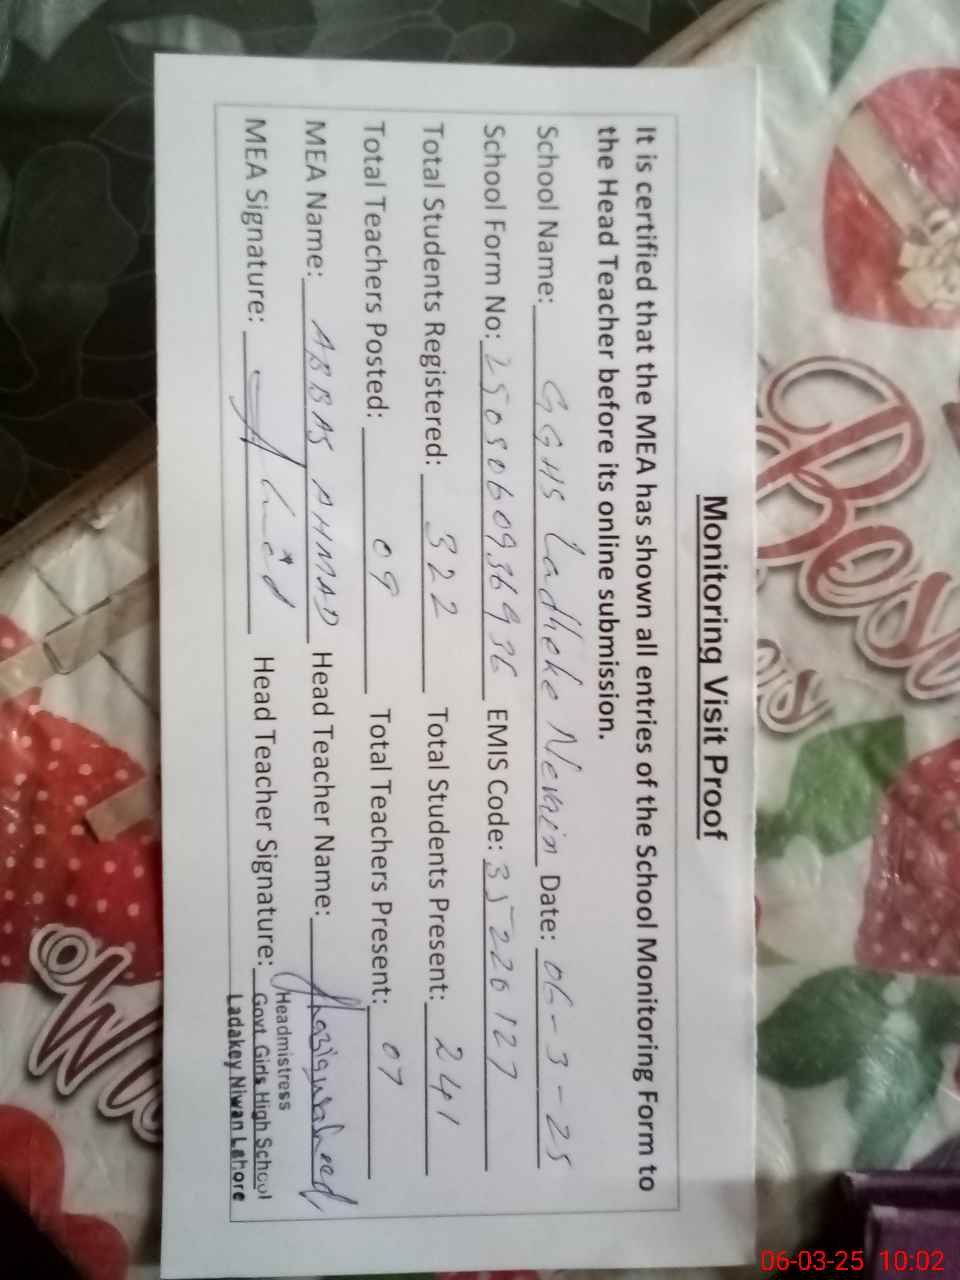 Monitoring Visit Proof
It is certified that the MEA has shown all entries of the School Monitoring Form to
the Head Teacher before its online submission.
School Name: GGHS Ladheke Newain Date: 06-3-25
School Form No: 2505060936936 EMIS Code: 35220127
Total Students Registered: 322 Total Students Present: 241
Total Teachers Posted: 09 Total Teachers Present: 07
MEA Name: ABBAS AHMAD Head Teacher Name:
MEA Signature: Head Teacher Signature:
Headmistress
Govt. Girls High School
Ladakey Niwan Lahore
Best
06-03-25 10:02